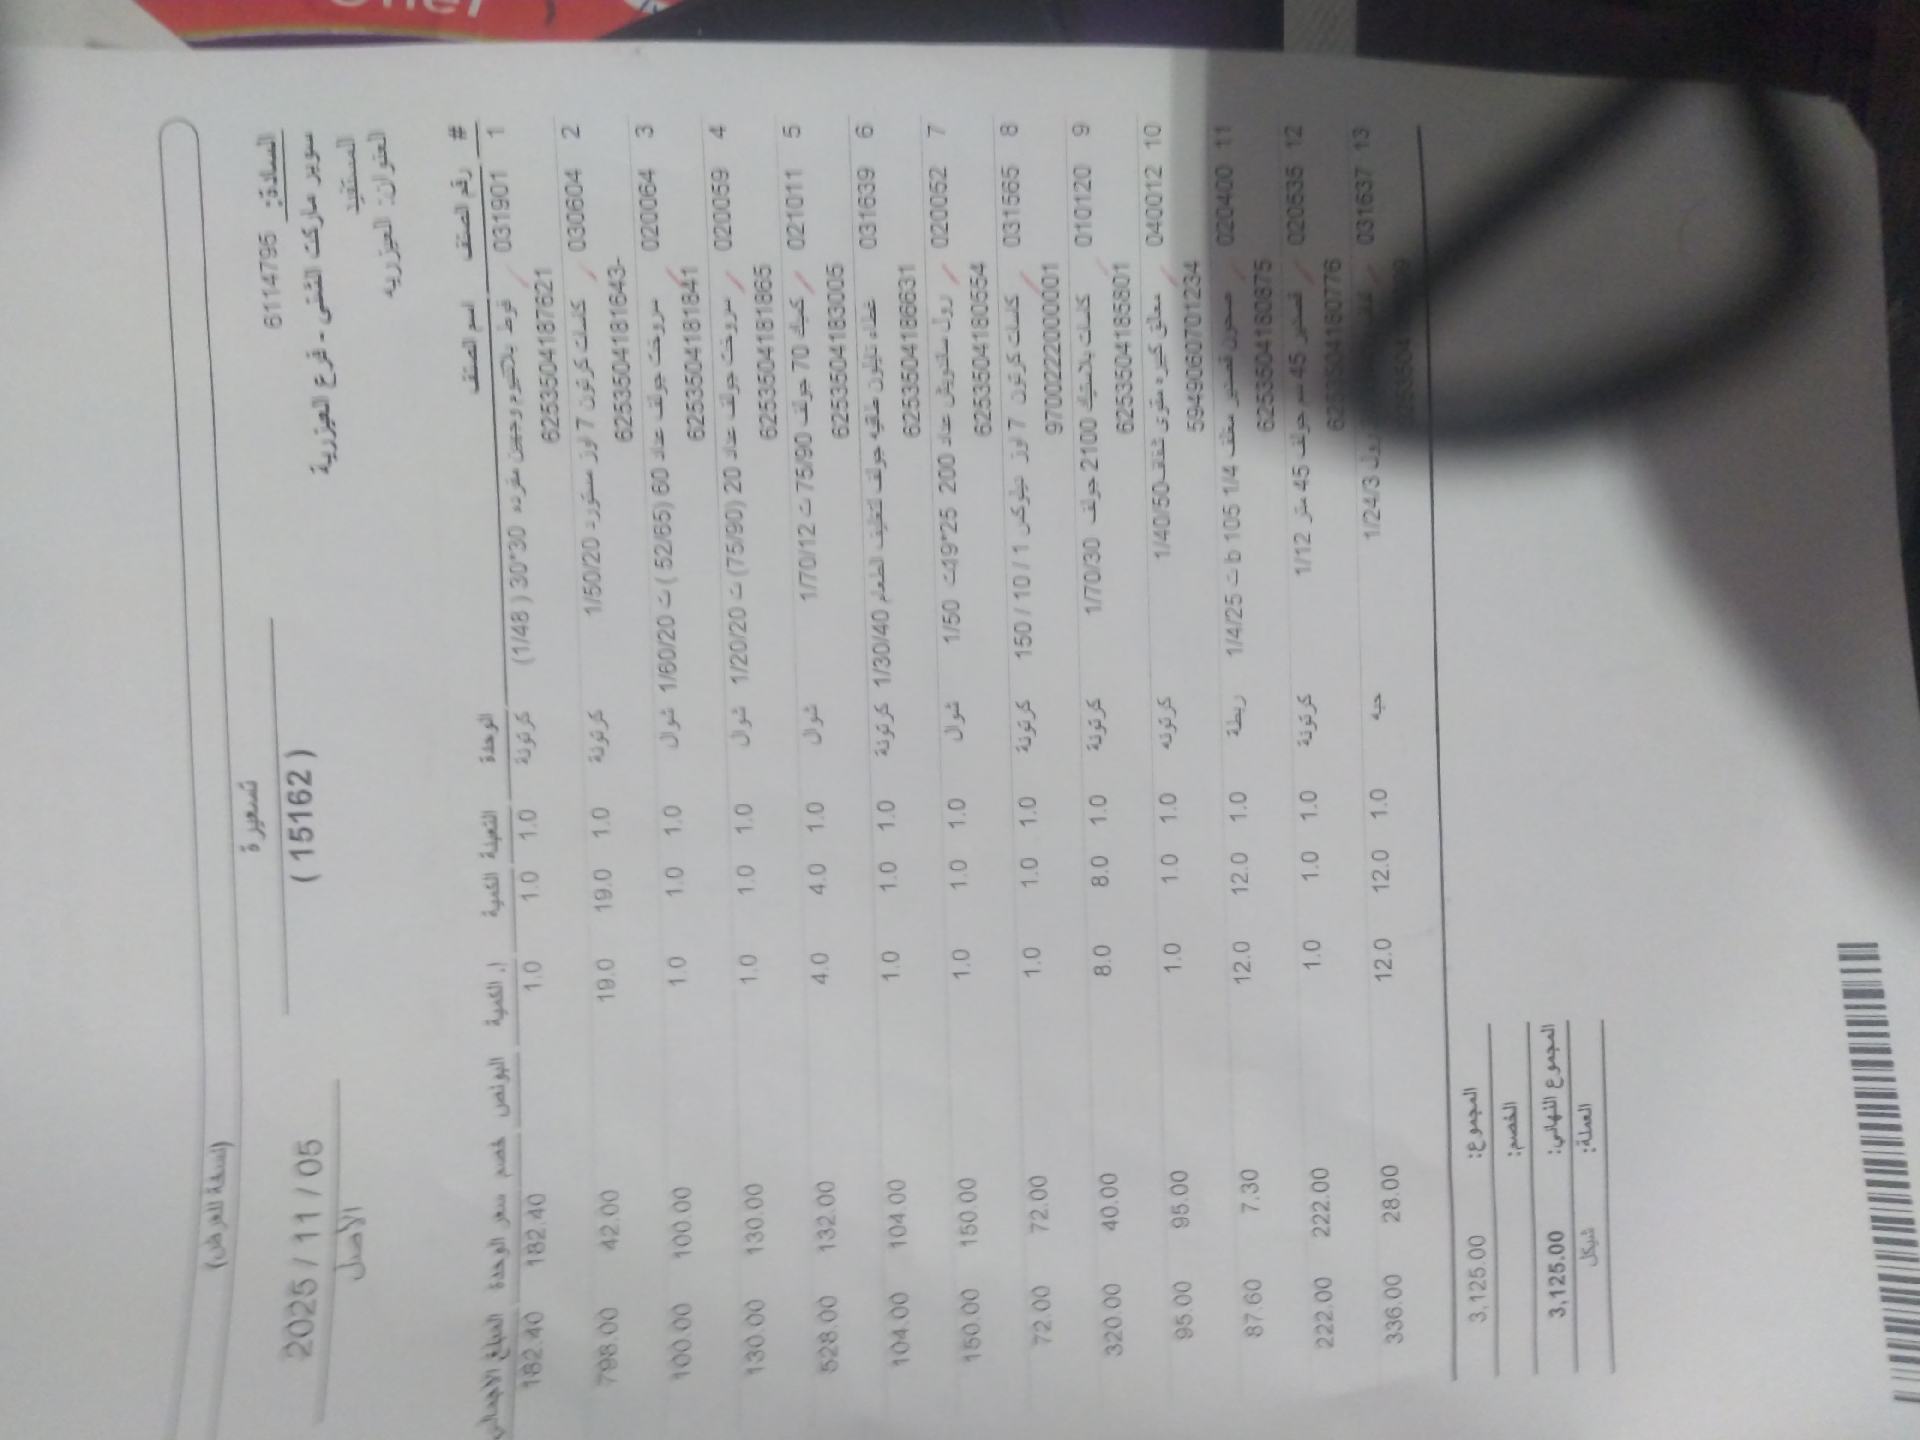 (نسخة للعرض)
السادة: 6114795
سوبر ماركت الشني - فرع العيزرية
المستفيد
العنوان: العيزريه
تسعيرة
( 15162 )
2025 / 11 / 05
الأصل
# رقم الصنف اسم الصنف الوحدة التعبئة الكمية إ. الكمية البونص خصم سعر الوحدة المبلغ الاجمالي
1 031901 فوط بلاتنيوم وجهين مفرده 30*30 ( 1/48) كرتونة 1.0 1.0 1.0 182.40 182.40
6253504187621
2 030604 كاسات كرتون 7 اوز مستورد 1/50/20 كرتونة 1.0 19.0 19.0 42.00 798.00
6253504181643-
3 020064 سروخت جولف عداد 60 (52/65 ) ت 1/60/20 شوال 1.0 1.0 1.0 100.00 100.00
6253504181841
4 020059 سروخت جولف عداد 20 (75/90) ت 1/20/20 شوال 1.0 1.0 1.0 130.00 130.00
6253504181865
5 021011 70 جولف 75/90 ت 1/70/12 شوال 1.0 4.0 4.0 132.00 528.00
6253504183005
6 031639 غطاء نايلون طاقيه جولف لتغليف الطعام 1/30/40 كرتونة 1.0 1.0 1.0 104.00 104.00
6253504186631
7 020052 رول ساندويش عداد 200 25*19ت 1/50 شوال 1.0 1.0 1.0 150.00 150.00
6253504180554
8 031565 كاسات كرتون 7 اوز 150 / 10 / 1 كرتونة 1.0 1.0 1.0 72.00 72.00
9700222000001
9 010120 كاسات بلاستيك 2100 جولف 1/70/30 كرتونة 1.0 8.0 8.0 40.00 320.00
6253504185801
10 040012 معالق كبيره مقوى شفاف1/40/50 كرتونه 1.0 1.0 1.0 95.00 95.00
5949060701234
11 020400 صحون قصدير مغلف 1/4 105 b ت 1/4/25 ربطة 1.0 12.0 12.0 7.30 87.60
6253504180875
12 020535 قصدير 45 سم جولف 45 متر 1/12 كرتونة 1.0 1.0 1.0 222.00 222.00
6253504180776
13 031637 رول 1/24/3 حبه 1.0 12.0 12.0 28.00 336.00
المجموع: 3,125.00
الخصم:
المجموع النهائي: 3,125.00
العملة: شيكل